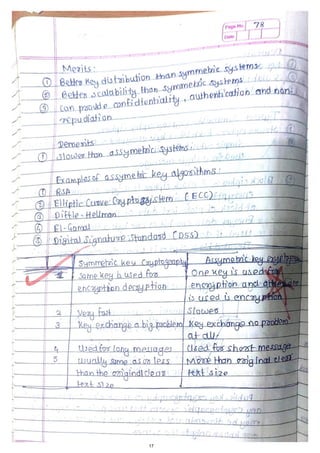 Page No. 78
Date
Merits:
① Better key distribution than symmetric systems.
② Better scalability than symmetric systems
③ Can provide confidentiality, authentication and non
repudiation
Demerits
① Slower than assymetric systems.
Examples of assymetric key algorithms:
① RSA
② Elliptic Curve Cryptosystem (ECC)
③ Diffie-Hellman
④ El-Gamal
⑤ Digital Signature Standard (DSS)
Symmetric key Cryptography Assymetric key
1 Same key is used for One key is used for
encryption decryption encryption and
is used is encryption
2 Very fast Slower
3 Key exchange a big problem Key exchange no problem
at all
4 Used for long messages Used for short messages
5 usually same as or less More than original clear
than the original clear text size
text size
17